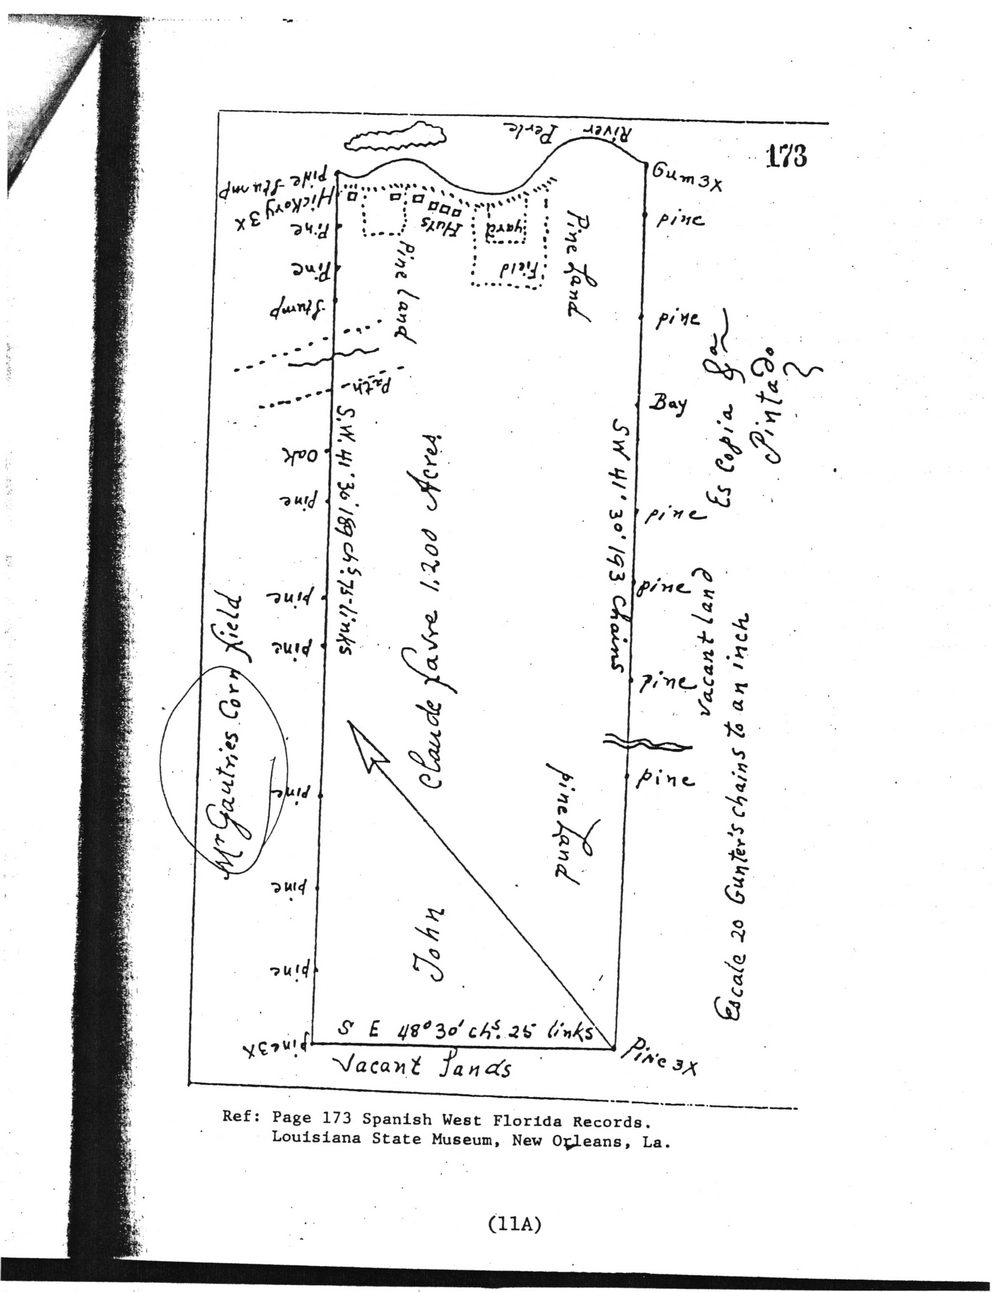 River Perle
173
Pine Stump
Hickory 3X
Pine
Pine
Stump
Path
Oak
pine
pine
pine
pine
pine
pine
pine 3X
Huts
yard
Field
Pine land
Pine Land
Gum 3X
pine
pine
Bay
pine
pine
pine
pine
Pine 3X
S.W. 41° 30' 189 chs. 75 - links
SW 41° 30' 193 chains
John Claude Favre 1,200 Acres
pine Land
Mr Gautries Corn field
Es Copia
Pintado
vacant land
Escale 20 Gunter's chains to an inch
S E 48° 30' chs. 25 links
Vacant Lands
Ref: Page 173 Spanish West Florida Records.
Louisiana State Museum, New Orleans, La.
(11A)